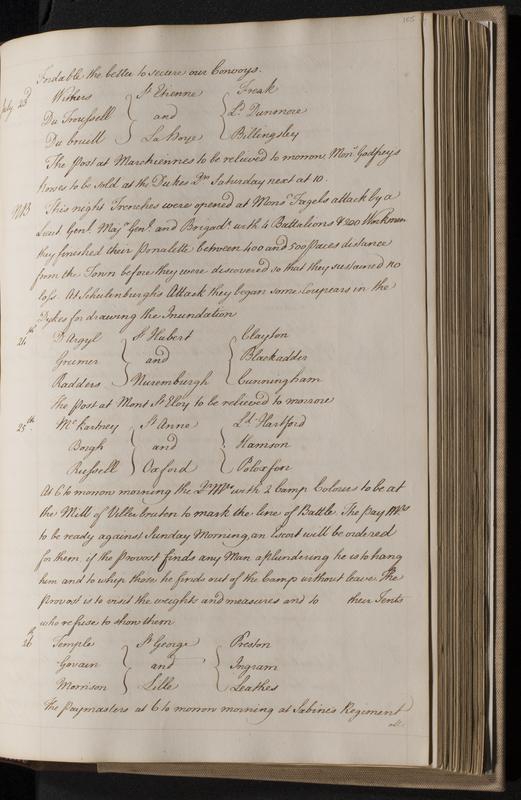 165
Findable the better to secure our Convoys.
July 23d Withers } St Etienne { Freak
Du Troussell } and { Ld. Dunmore
Du bruill } La haye { Billingsley
The Post at Marchiennes to be relieved to morrow Monr Godfreys
Horses to be sold at the Dukes Qrs Saturday next at 10.
NB This night Trenches were opened at Monsr Fagels attack by a
Lieut. Genl. Majr Genl. and Brigadr. with 4 Battalions & 800 Workmen
they finished their Paralells between 400 and 500 Paces distance
from the Town before they were discovered so that they sustained no
loss. At Schulenburghs Attack they began some Coupeurs in the
Dykes for drawing the Inundation
24th D'Argyl } St Hubert { Clayton
Grumer } and { Blackadder
Radders } Nuremburgh { Cunningham
The Post at Mont St Eloy to be relieved to morrow
25th McKartney } St Anne { Ld. Hartford
Borgh } and { Hamson
Russell } Oxford { Poloxfen
At 6 to morrow morning the Qr Mrs with 2 Camp Colours to be at
the Mill of Villes bruten to mark the line of Battle. The Pay Mrs
to be ready against Sunday Morning, an Escort will be ordered
for them, if the Provost finds any Man a plundering he is to hang
him and to whip those he finds out of the Camp without leave. The
Provost is to visit the weights and measures and to their Tents
who refuse to show them
26th Temple } St George { Preston
Govain } and { Ingram
Morrison } Lille { Leathes
The Paymasters at 6 to morrow morning at Sabines Regiment